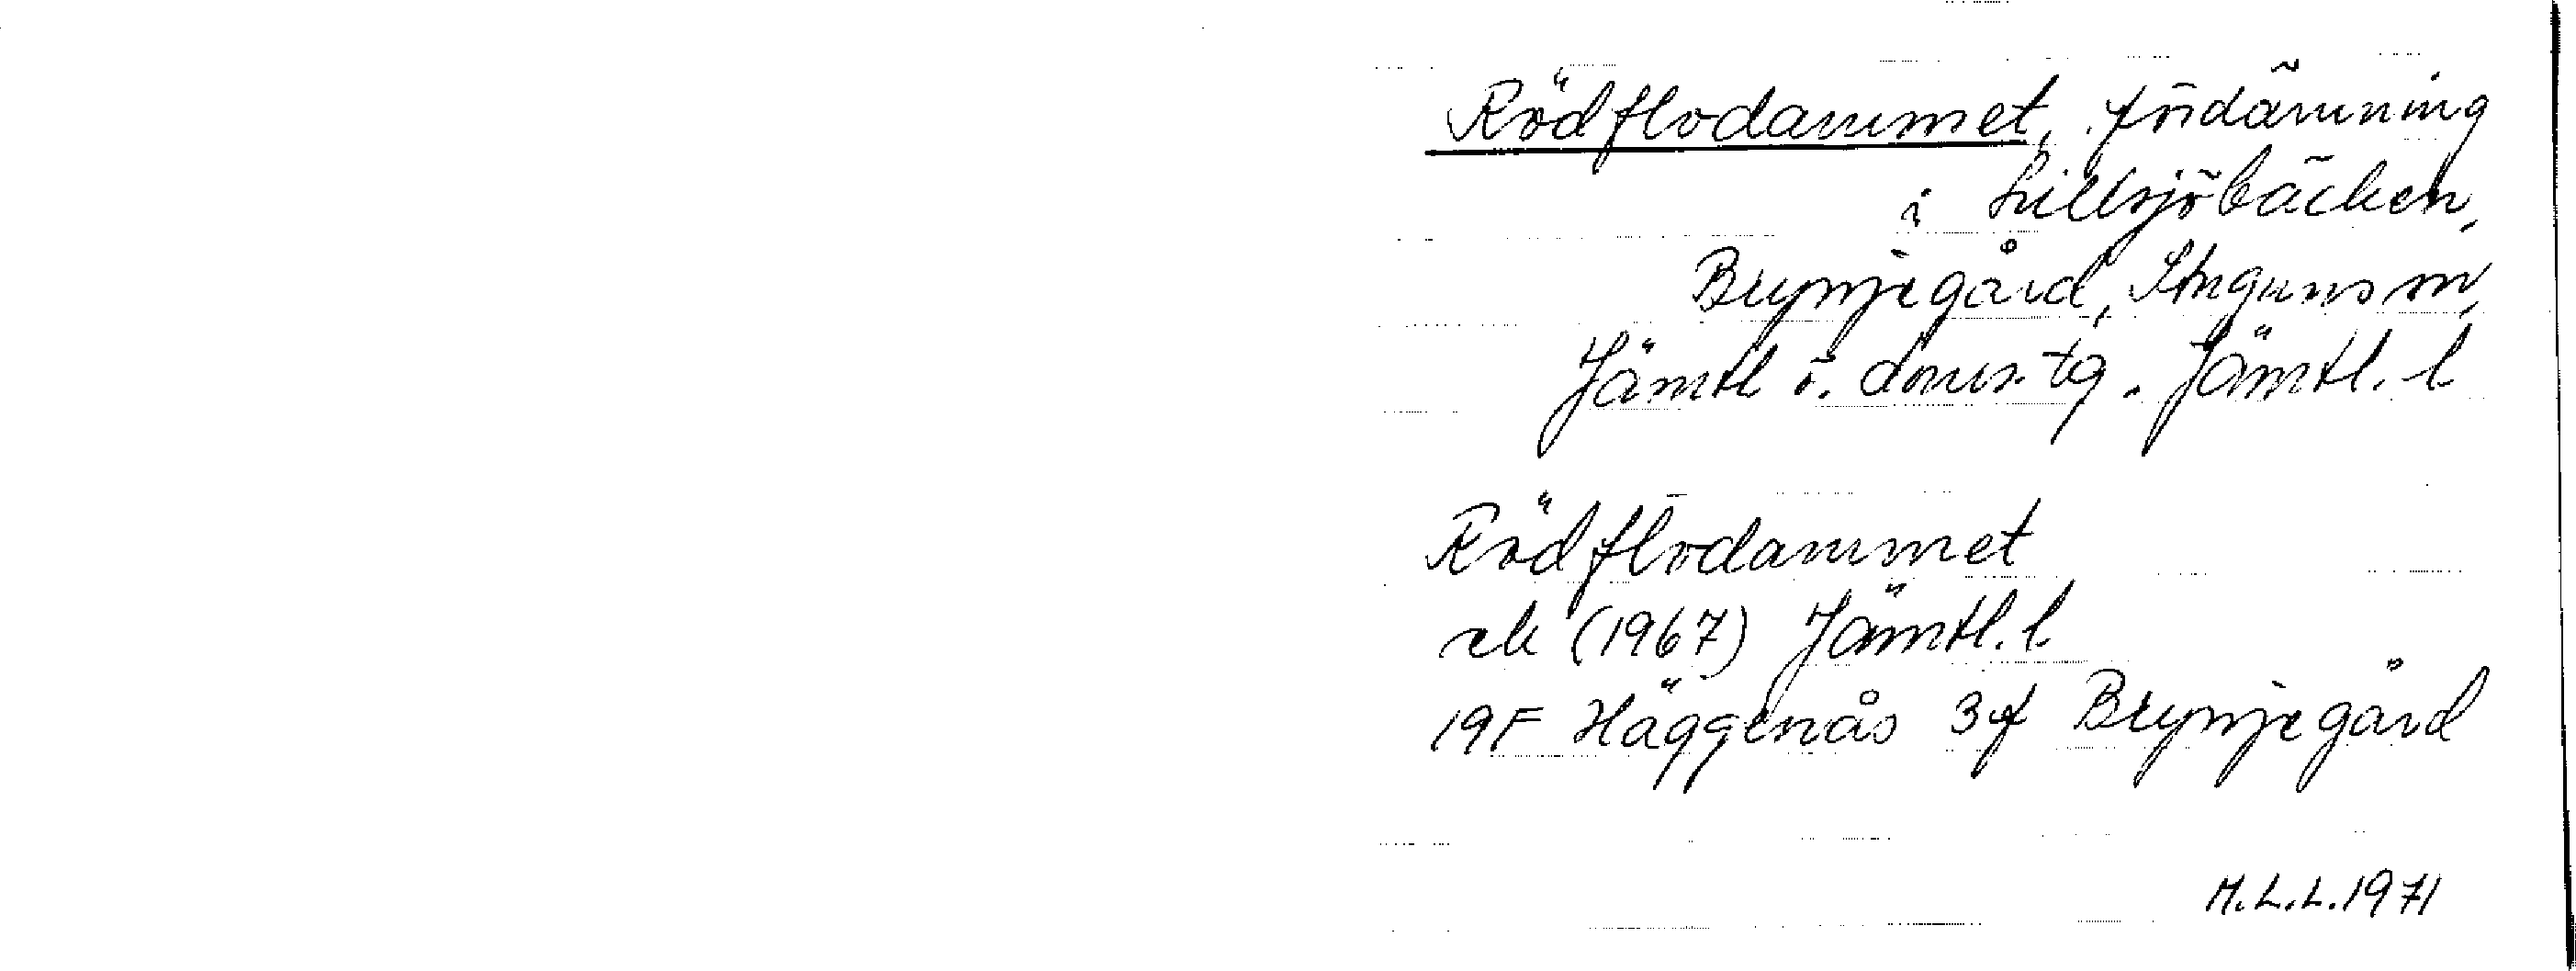 Rödflodammet, fördämning
i Lillsjöbäcken,
Brynjegård, Stuguns sn,
Jämtl ö. doms. tg. Jämtl. l
Rödflodammet
ek (1967) Jämtl. l
19F Häggenås 3f Brynjegård
M.L.L. 1971